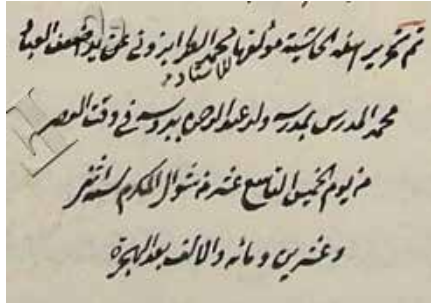 تم تحرير هذه الحاشية مؤلفها محمد الطرابزوني عن يد اضعف العباد
للاستاد
محمد المدرس بمدرسه ولد عبد الرحمن ببروسه في وقت العصر
من يوم الخميس التاسع عشر من شوال المكرم لسنة اثنى
وعشرين ومائه والالف بعد الهجرة